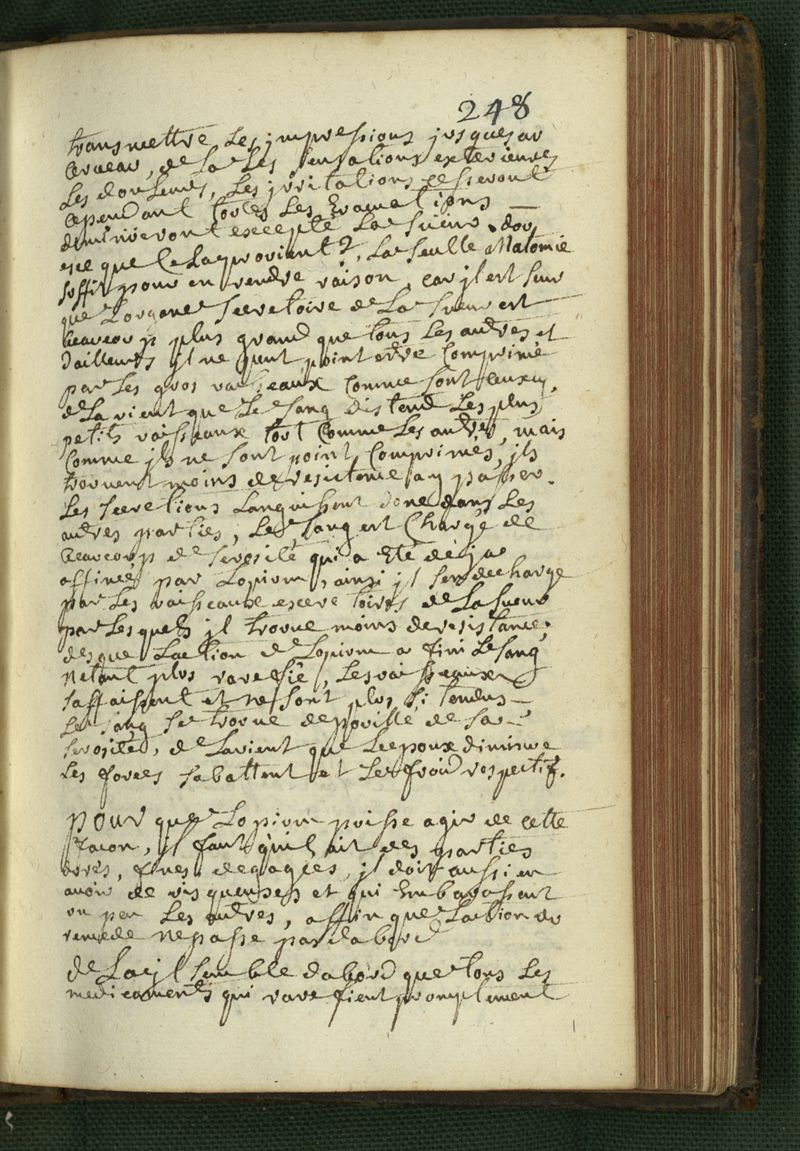 248
transmettre les impressions jusques au
cerveau, de la les sensations exterieures
les douleurs, les irritations cesseront
cependant toutes les evacuations
diminueront excepté la sueur. dou
esce que cela provient?, la seulle anatomie
suffit pour en rendre raison, car il est sur
que lorgane secretoire de la sueur est
beaucoup plus grand que tous les autres et
dailleurs il ne peut point etre comprimé
par les gros vaisseaux comme sont ceuxcy,
de la vient que le sang distend les plus
petits vaisseaux tout comme les autres, mais
comme ils ne sont point comprimes, ils
trouvent moins de resistence a y passer.
les secretions languissent donc dans les
autres parties, le sang est chargé de
beaucoup de serosité qui a eté deja
affinée par lopium, ainsi il sen decharge
par les vaisseaux excretoires de la sueur
par lesquels il trouve moins de resistance;
des que laction de lopium a fini le sang
netant plus rarefié, les vaisseaux
saffaissent et ne sont plus si tendus
le sang se trouve depouillé de sa
serosité, de la vient que le poux diminue
les forces sabattent et le froid respectif.
pour que lopium puisse agir de cette
facon, il faut quil ait des parties
acres, fines degagées, il doit aussi en
avoir de visqueuses et qui embarassent
un peu les autres, affin que laction du
remede ne passe pas dabord
de la il semble dabord que tous les
medicaments qui rarefient promptement